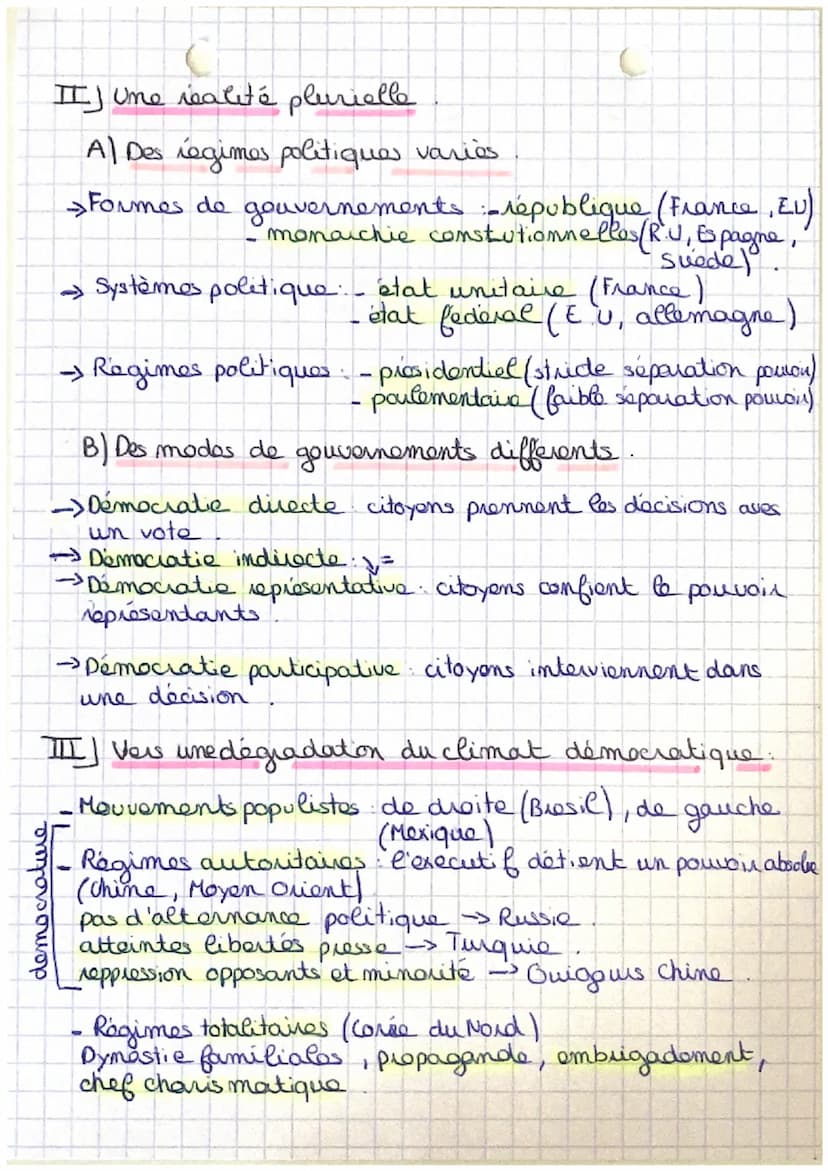 II) Une réalité plurielle.
A) Des régimes politiques variés.
→ Formes de gouvernements : - république (France, EU)
- monarchie constutionnelles (R.U, Espagne,
Suède).
→ Systèmes politique : - état unitaire (France)
- état fédéral (E.U, allemagne)
→ Régimes politiques : - présidentiel (stricte séparation pouvoir)
- parlementaire (faible séparation pouvoir)
B) Des modes de gouvernements différents.
→ Démocratie directe : citoyens prennent les décisions avec
un vote.
→ Démocratie indirecte : ↓=
→ Démocratie représentative : citoyens confient le pouvoir
représentants.
→ Démocratie participative : citoyens interviennent dans
une décision.
III) Vers une dégradaton du climat démocratique.
- Mouvements populistes : de droite (Brésil), de gauche
(Mexique)
democrature
- Régimes autoritaires : l'executif détient un pouvoir absolue
(Chine, Moyen Orient)
pas d'alternance politique → Russie.
atteintes libertés presse → Turquie.
reppression opposants et minorité → Ouigours Chine.
- Régimes totalitaires (Corée du Nord)
Dynastie familiales, propagande, embrigadement,
chef charismatique.